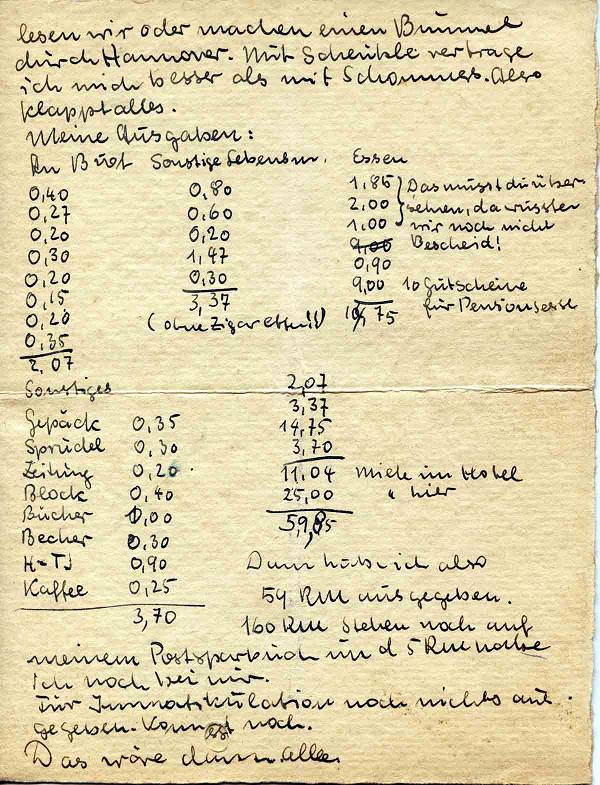 lesen wir oder machen einen Bummel
durch Hannover. Mit Scheukle vertrage
ich mich besser als mit Schommes. Also
klappt alles.
Meine Ausgaben:
An Brot Sonstige Lebensm. Essen
0,40 0,80 1,85 Das musst du über-
0,27 0,60 2,00 sehen, da wussten
0,20 0,20 1,00 wir noch nicht
0,30 1,47 9,00 Bescheid!
0,20 0,30 0,90
0,15 3,37 9,00 10 Gutscheine
0,20 (ohne Zigaretten!!) 14,75 für Pensionsesse
0,35
2,07
Sonstiges 2,07
Gepäck 0,35 3,37
Sprudel 0,30 14,75
Zeitung 0,20 3,70
Block 0,40 11,04 Miete im Hotel
Bücher 1,00 25,00 " hier
Becher 0,30 59,85
H-TJ 0,90 Dann habe ich also
Kaffee 0,25 59 RM ausgegeben.
3,70 160 RM stehen noch auf
meinem Postsparbuch und 5 RM habe
ich noch bei mir.
Für Immatrikulation noch nichts aus-
gegeben. Kommt erst noch.
Das wäre dann alles.